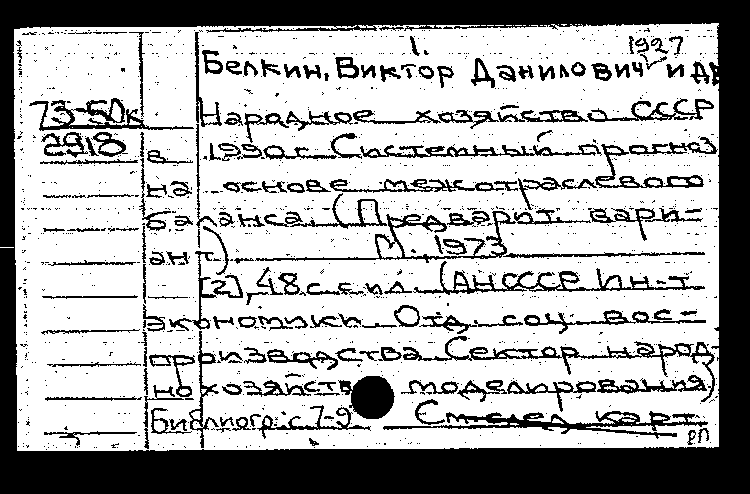 1.
1927
Белкин, Виктор Данилович и др
73-50к Народное хозяйство СССР
2918 в 1990 г. Системный прогноз
на основе межотраслевого
баланса. (Предварит. вари-
ант). М., 1973
[2], 48 с. с ил. (АН СССР Ин-т
экономики. Отд. соц. вос-
производства Сектор народ-
нохозяйств моделирования)
Библиогр: с 7-9 См след карт
РП